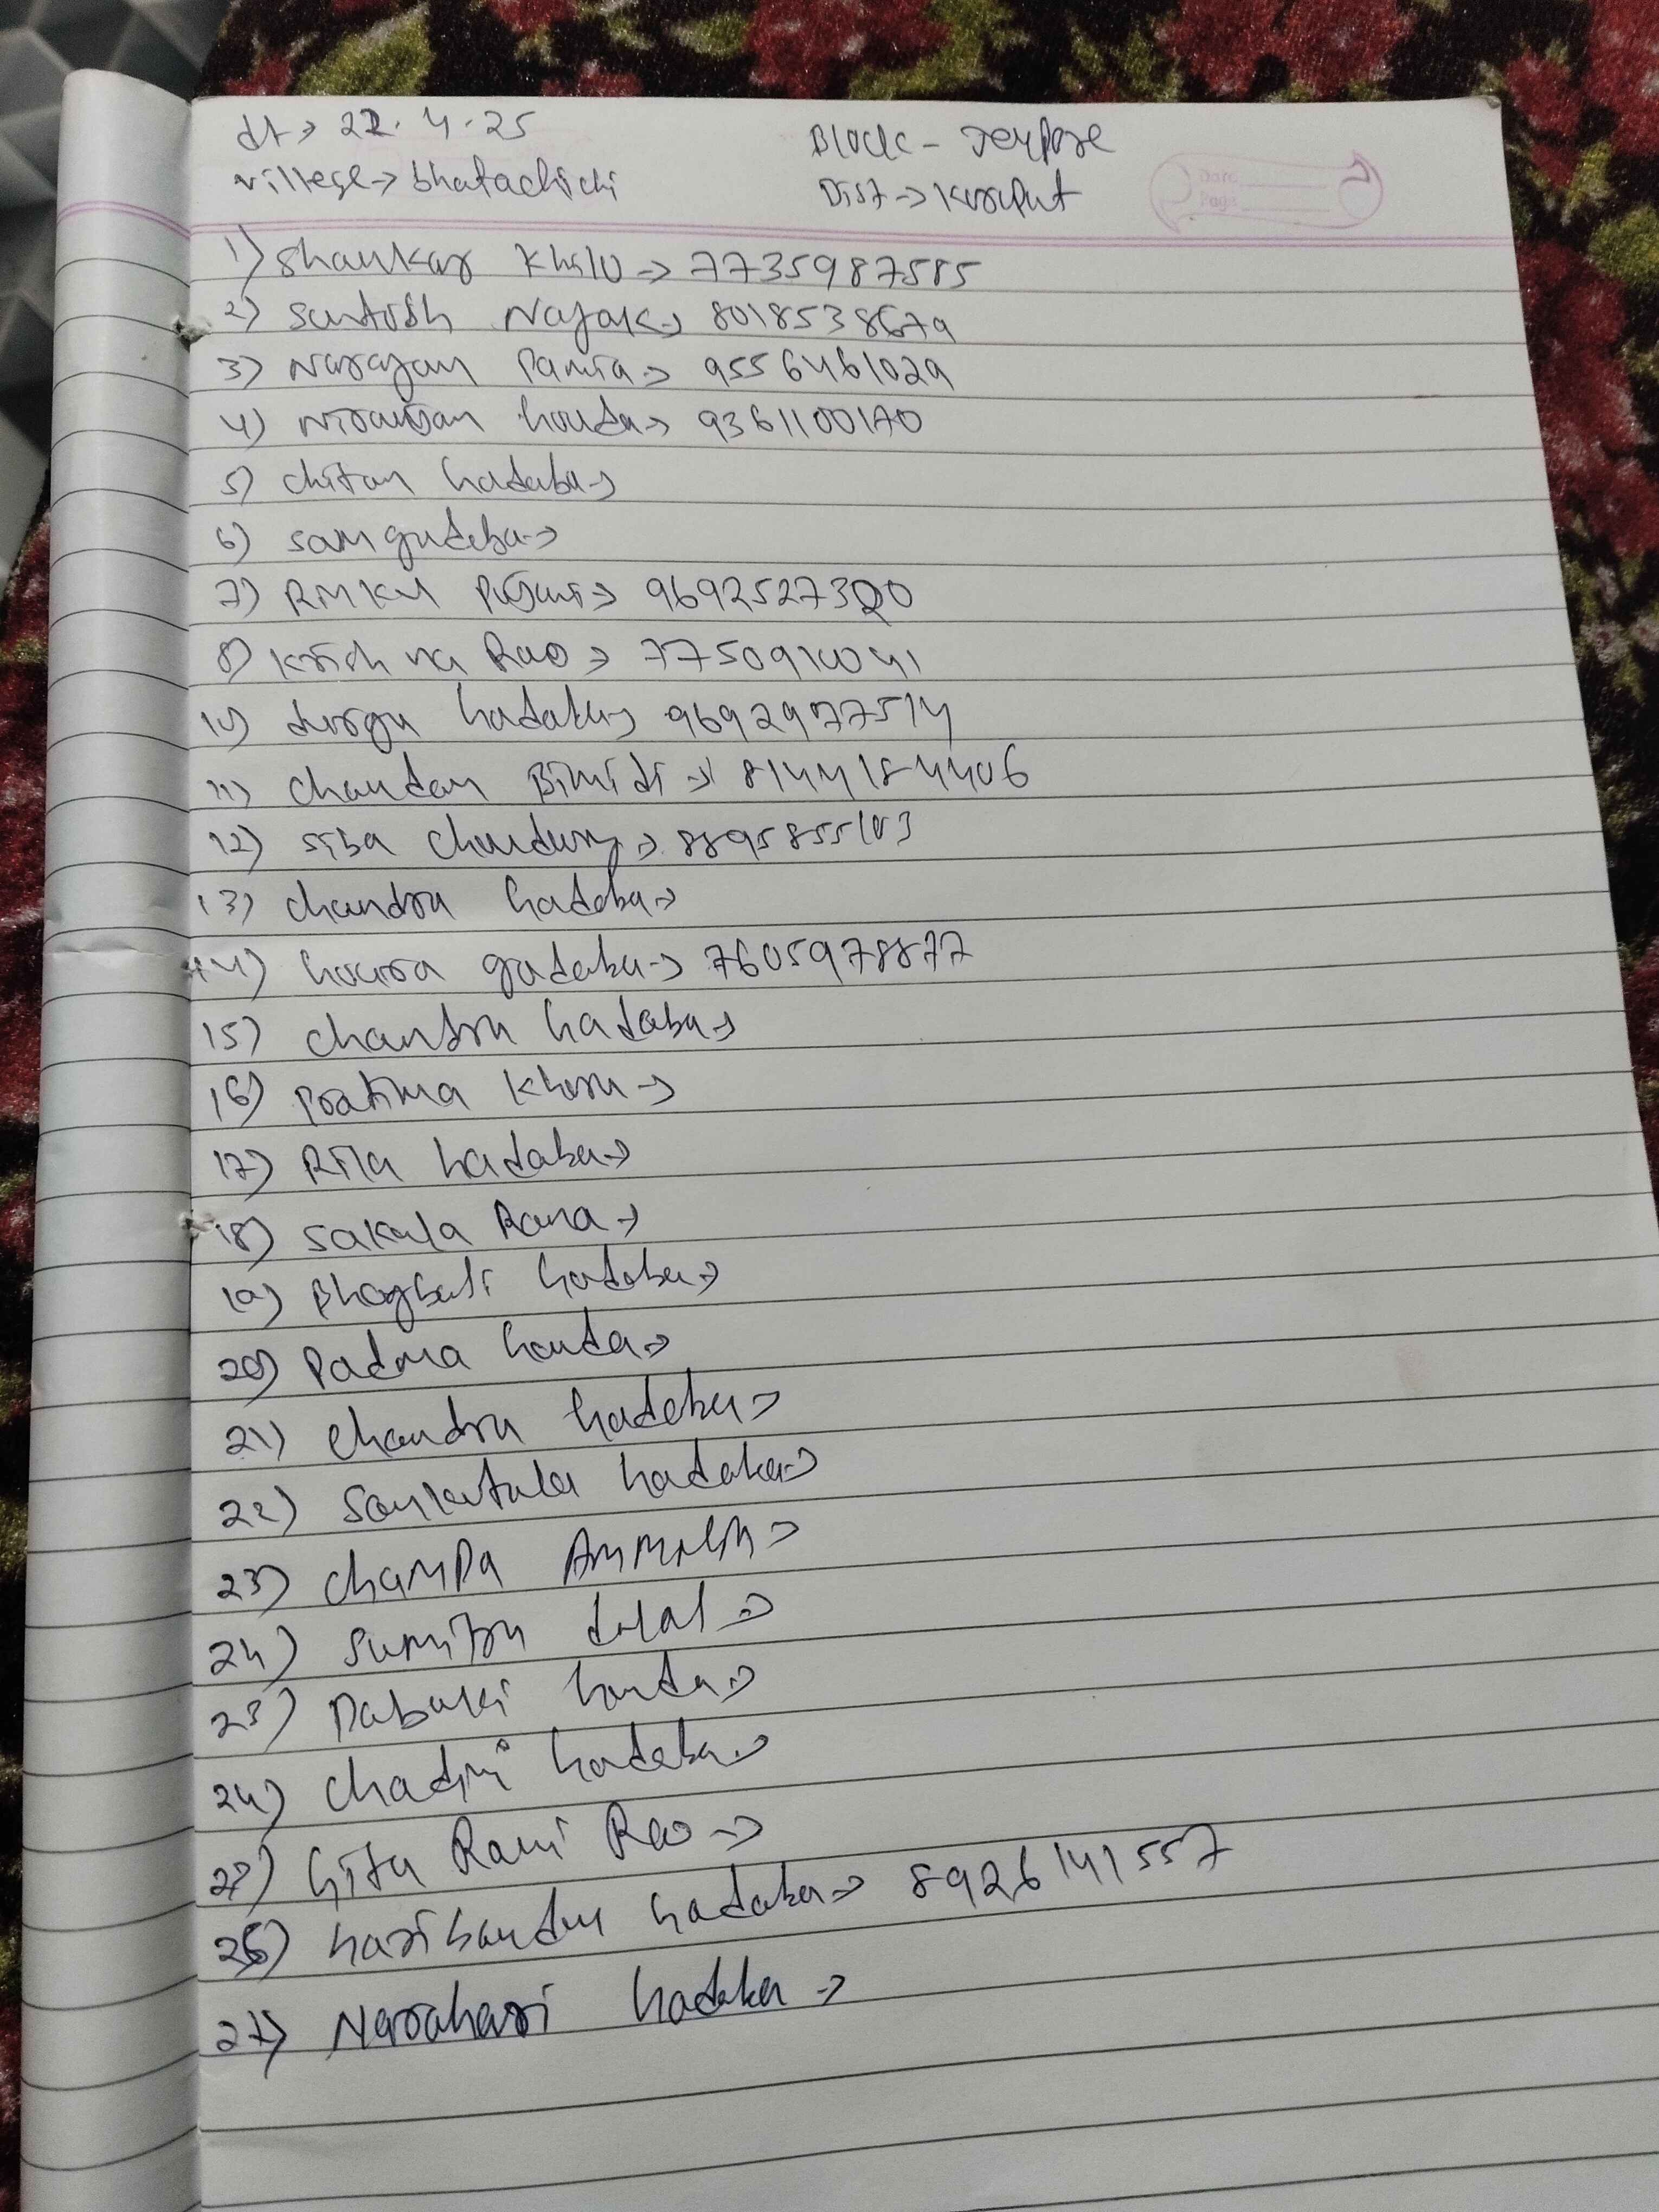 dt → 22.4.25
Block - Jeypore
villege → bhatachichi
Dist → Koraput
Date
Page
1) Shankar Khilo → 7735987585
2) Santosh Nayak → 8018538679
3) Narayan Pania → 9556461029
4) Niranjan hanta → 9361100170
5) chitan hadaba →
6) sam gudeba →
7) Rinku Pujari → 9692527320
8) Krish na Rao → 7750910041
10) durga hadaba → 9692977514
11) chandan Bihidi → 8144184406
12) siba choudury → 8895855103
13) chandra hadaba →
14) gadaba → 7605978877
15) chandra hadaba →
16) Pratima Khora →
17) Rila hadaba →
18) sakula Rana →
19) Bhagbati hadaba →
20) Padma hanta →
21) chandra hadaba →
22) Sankutala hadaba →
23) champa →
24) Sumitra →
23) Dabaki hanta →
24) hadaba →
Gita Rani Rao →
26) haribandu hadaba → 8926141557
27) Narahari hadaba →